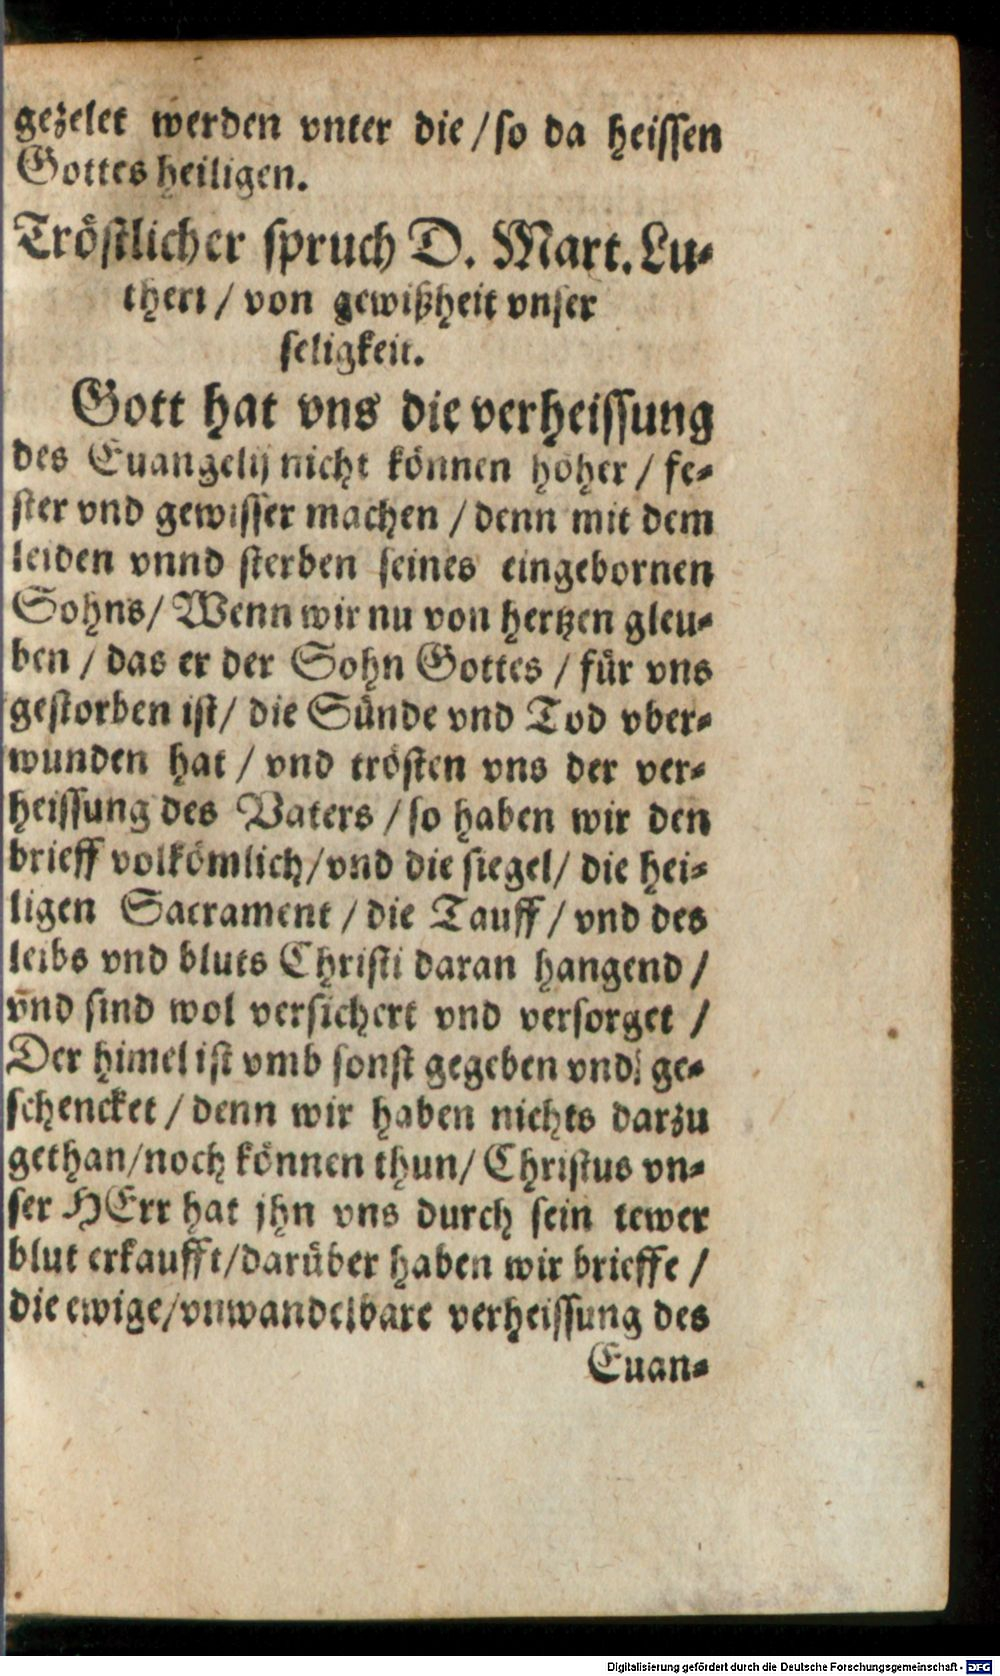 gezelet werden vnter die / so da heissen
Gottes heiligen.
Tröstlicher spruch D. Mart. Lu-
theri / von gewißheit vnser
seligkeit.
Gott hat vns die verheissung
des Euangelij nicht können höher / fe-
ster vnd gewisser machen / denn mit dem
leiden vnnd sterben seines eingebornen
Sohns / Wenn wir nu von hertzen gleu-
ben / das er der Sohn Gottes / für vns
gestorben ist / die Sünde vnd Tod vber-
wunden hat / vnd trösten vns der ver-
heissung des Vaters / so haben wir den
brieff volkömlich / vnd die siegel / die hei-
ligen Sacrament / die Tauff / vnd des
leibs vnd bluts Christi daran hangend /
vnd sind wol versichert vnd versorget /
Der himel ist vmb sonst gegeben vnd ge-
schencket / denn wir haben nichts darzu
gethan / noch können thun / Christus vn-
ser HErr hat jhn vns durch sein tewer
blut erkaufft / darüber haben wir brieffe /
die ewige / vnwandelbare verheissung des
Euan-
Digitalisierung gefördert durch die Deutsche Forschungsgemeinschaft - DFG